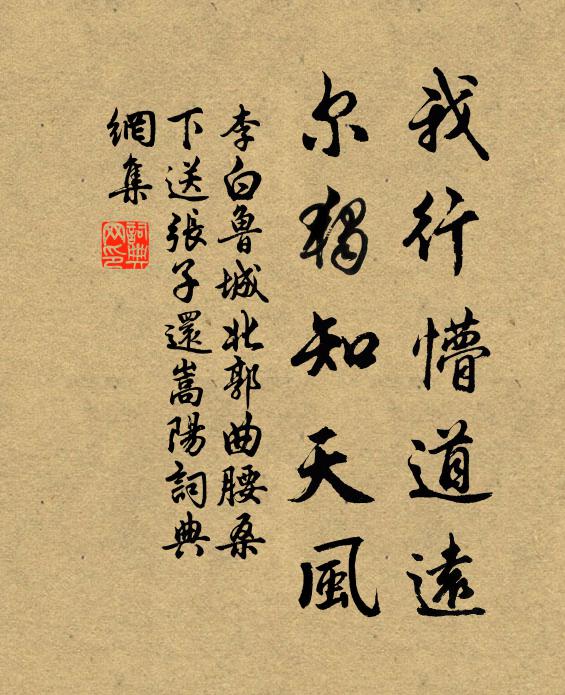 我行懵道遠
尔獨知天風
李白魯城北郭曲腰桑
下送張子還嵩陽詞典
網集
詞典
网印